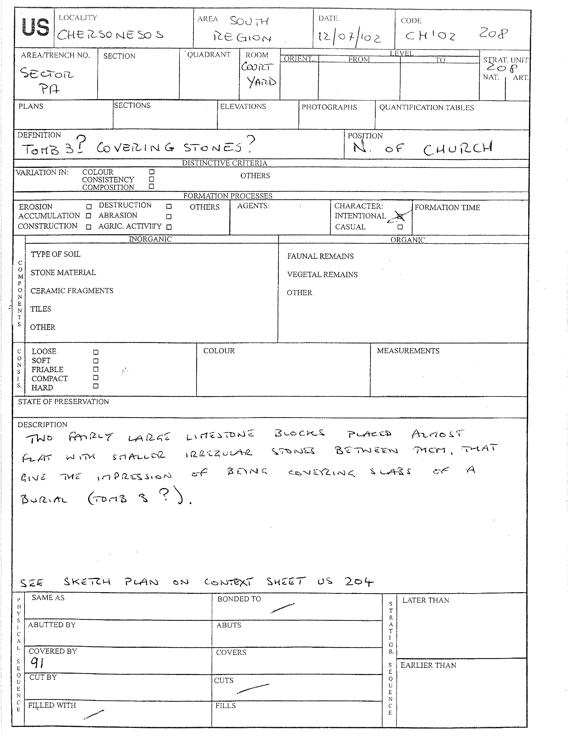 US
LOCALITY
CHERSONESOS
AREA SOUTH
REGION
DATE
12/07/02
CODE
CH'02 208
AREA/TRENCH NO.
SECTOR
PA
SECTION
QUADRANT
ROOM
COURT
YARD
LEVEL
ORIENT. FROM TO
STRAT. UNIT
208
NAT. ART.
PLANS
SECTIONS
ELEVATIONS
PHOTOGRAPHS
QUANTIFICATION TABLES
DEFINITION
TOMB 3? COVERING STONES?
POSITION
N. OF CHURCH
DISTINCTIVE CRITERIA
VARIATION IN: COLOUR
CONSISTENCY
COMPOSITION
OTHERS
FORMATION PROCESSES
EROSION DESTRUCTION OTHERS
ACCUMULATION ABRASION
CONSTRUCTION AGRIC. ACTIVITY
AGENTS:
CHARACTER:
INTENTIONAL
CASUAL
FORMATION TIME
INORGANIC
ORGANIC
COMPONENTS
TYPE OF SOIL
STONE MATERIAL
CERAMIC FRAGMENTS
TILES
OTHER
FAUNAL REMAINS
VEGETAL REMAINS
OTHER
CONSIS.
LOOSE
SOFT
FRIABLE
COMPACT
HARD
COLOUR
MEASUREMENTS
STATE OF PRESERVATION
DESCRIPTION
TWO FAIRLY LARGE LIMESTONE BLOCKS PLACED ALMOST
FLAT WITH SMALLER IRREGULAR STONES BETWEEN THEM, THAT
GIVE THE IMPRESSION OF BEING COVERING SLABS OF A
BURIAL (TOMB 3 ?).
SEE SKETCH PLAN ON CONTEXT SHEET US 204
PHYSICAL SEQUENCE
SAME AS
BONDED TO
ABUTTED BY
ABUTS
COVERED BY
91
COVERS
CUT BY
CUTS
FILLED WITH
FILLS
STRATIGR. SEQUENCE
LATER THAN
EARLIER THAN